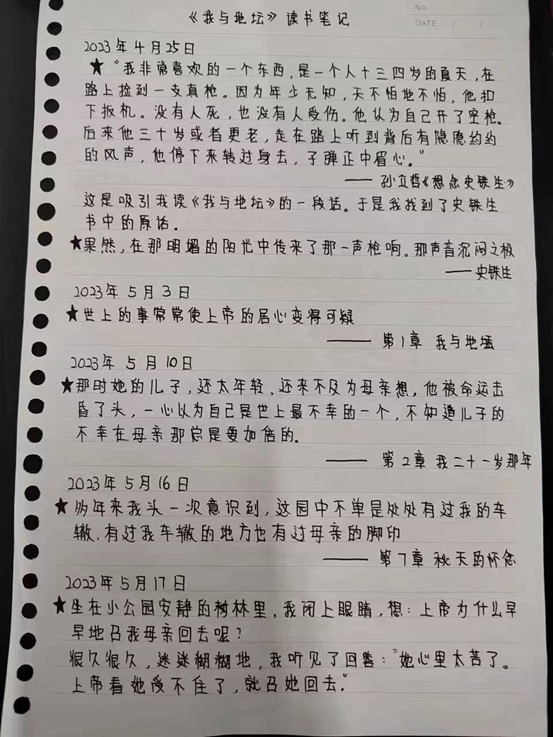 NO.
DATE / /
《我与地坛》读书笔记
2023年4月25日
★"我非常喜欢的一个东西,是一个人十三四岁的夏天,在
路上捡到一支真枪。因为年少无知,天不怕地不怕,他扣
下扳机。没有人死,也没有人受伤。他认为自己开了空枪。
后来他三十岁或者更老,走在路上听到背后有隐隐约约
的风声,他停下来转过身去,子弹正中眉心。"
——孙立哲《想念史铁生》
这是吸引我读《我与地坛》的一段话。于是我找到了史铁生
书中的原话。
★果然,在那明媚的阳光中传来了那一声枪响。那声音沉闷之极
——史铁生
2023年5月3日
★世上的事常常使上帝的居心变得可疑
—— 第1章 我与地坛
2023年5月10日
★那时她的儿子,还太年轻、还来不及为母亲想,他被命运击
昏了头,一心以为自己是世上最不幸的一个,不知道儿子的
不幸在母亲那总是要加倍的。
—— 第2章 我二十一岁那年
2023年5月16日
★多年来我头一次意识到,这园中不单是处处有过我的车
辙,有过我车辙的地方也有过母亲的脚印
—— 第7章 秋天的怀念
2023年5月17日
★坐在小公园安静的树林里,我闭上眼睛,想:上帝为什么早
早地召我母亲回去呢?
很久很久,迷迷糊糊地,我听见了回答:"她心里太苦了。
上帝看她受不住了,就召她回去。"